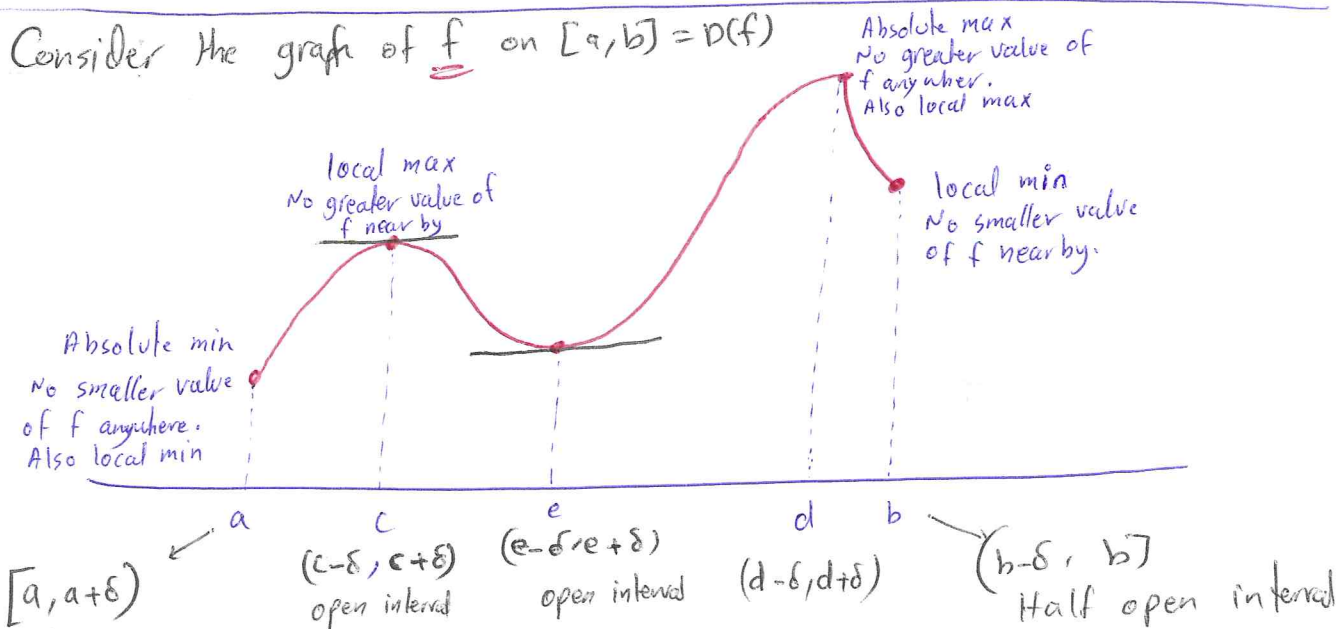 Consider the graph of f on [a,b] = D(f)
Absolute max
No greater value of
f anywher.
Also local max
local max
No greater value of
f near by
local min
No smaller value
of f nearby.
Absolute min
No smaller value
of f anywhere.
Also local min
a
c
e
d
b
[a, a+δ)
(c-δ, c+δ)
open interval
(e-δ, e+δ)
open interval
(d-δ, d+δ)
(b-δ, b]
Half open interval